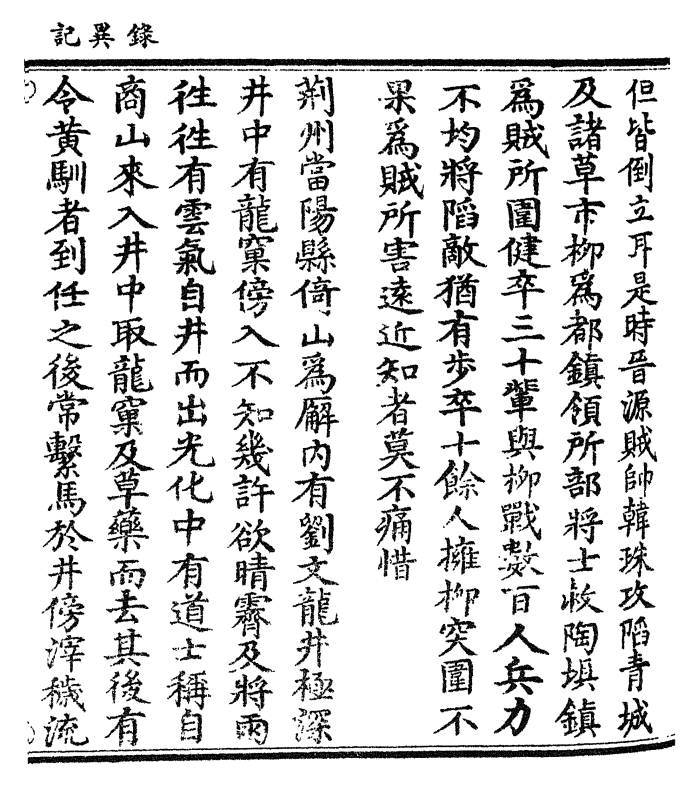 錄異記
但皆倒立耳是時晉源賊帥韓珠攻䧟青城
及諸草市柳爲都鎮領所部將士救陶垻鎮
爲賊所圍健卒三十輩與柳戰數百人兵力
不均將䧟敵猶有步卒十餘人擁柳突圍不
果爲賊所害遠近知者莫不痛惜
荊州當陽縣倚山爲廨內有劉文龍井極深
井中有龍窠傍入不知幾許欲晴霽及將雨
徃徃有雲氣自井而出光化中有道士稱自
商山來入井中取龍窠及草藥而去其後有
令黃馴者到任之後常繫馬於井傍滓穢流